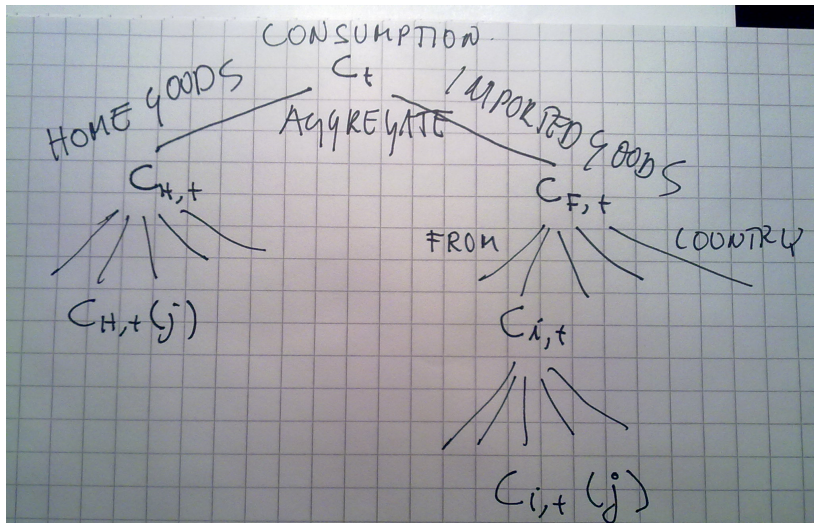 CONSUMPTION.
C_t
AGGREGATE
HOME GOODS
IMPORTED GOODS
C_H,t
C_F,t
FROM
COUNTRY
C_H,t(j)
C_i,t
C_i,t(j)